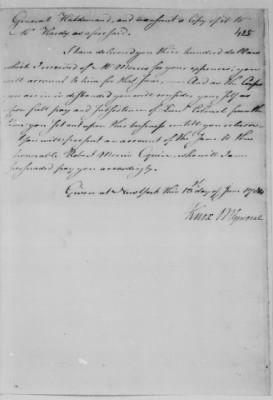 General Haldimand, and transmit a Copy of it to
Mr Hardy as aforesaid.
428
I have delivered you three hundred dollars
which I received of Mr Morris for your expences; you
will account to him for that Sum, — And as the Corps
you are in is disbanded you will consider yourself as
on full pay and subsistence of Lieut Colonel from the
time you set out upon this business untill you return.
You will present an account of the same to the
Honorable Robert Morris Esquire, who will I am
persuaded pay you accordingly.
Given at New York this day of June
Knox M General